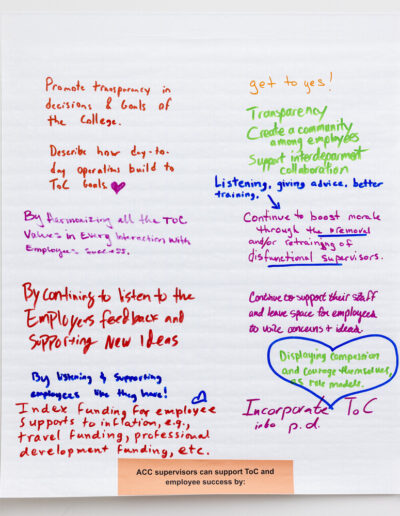 Promote transparency in
decisions & Goals of
the College.
Describe how day-to-
day operations build to
ToC Goals
By Harmonizing all the TOC
Values in Every Interaction with
Employee Success.
By contining to listen to the
Employees feedback and
Supporting New Ideas
By listening & supporting
employees like they have!
Index funding for employee
supports to inflation, e.g.,
travel funding, professional
development funding, etc.
get to yes!
Transparency
Create a community
among employees
Support interdeparment
collaboration
Listening, giving advice, better
training.
Continue to boost morale
through the removal
and/or retraining of
disfunctional supervisors.
Continue to support their staff
and leave space for employees
to voice concerns + ideas.
Displaying compassion
and courage themselves,
as role models.
Incorporate ToC
into p.d.
ACC supervisors can support ToC and
employee success by: